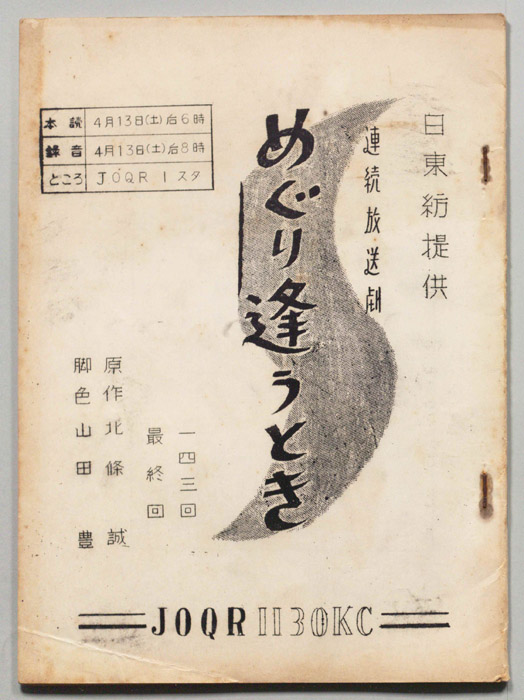 日東紡提供
連続放送劇
めぐり逢うとき
本読 4月13日(土)后6時
録音 4月13日(土)后8時
ところ JOQR 1スタ
一四三回
最終回
原作 北條誠
脚色 山田豊
JOQR 1130KC